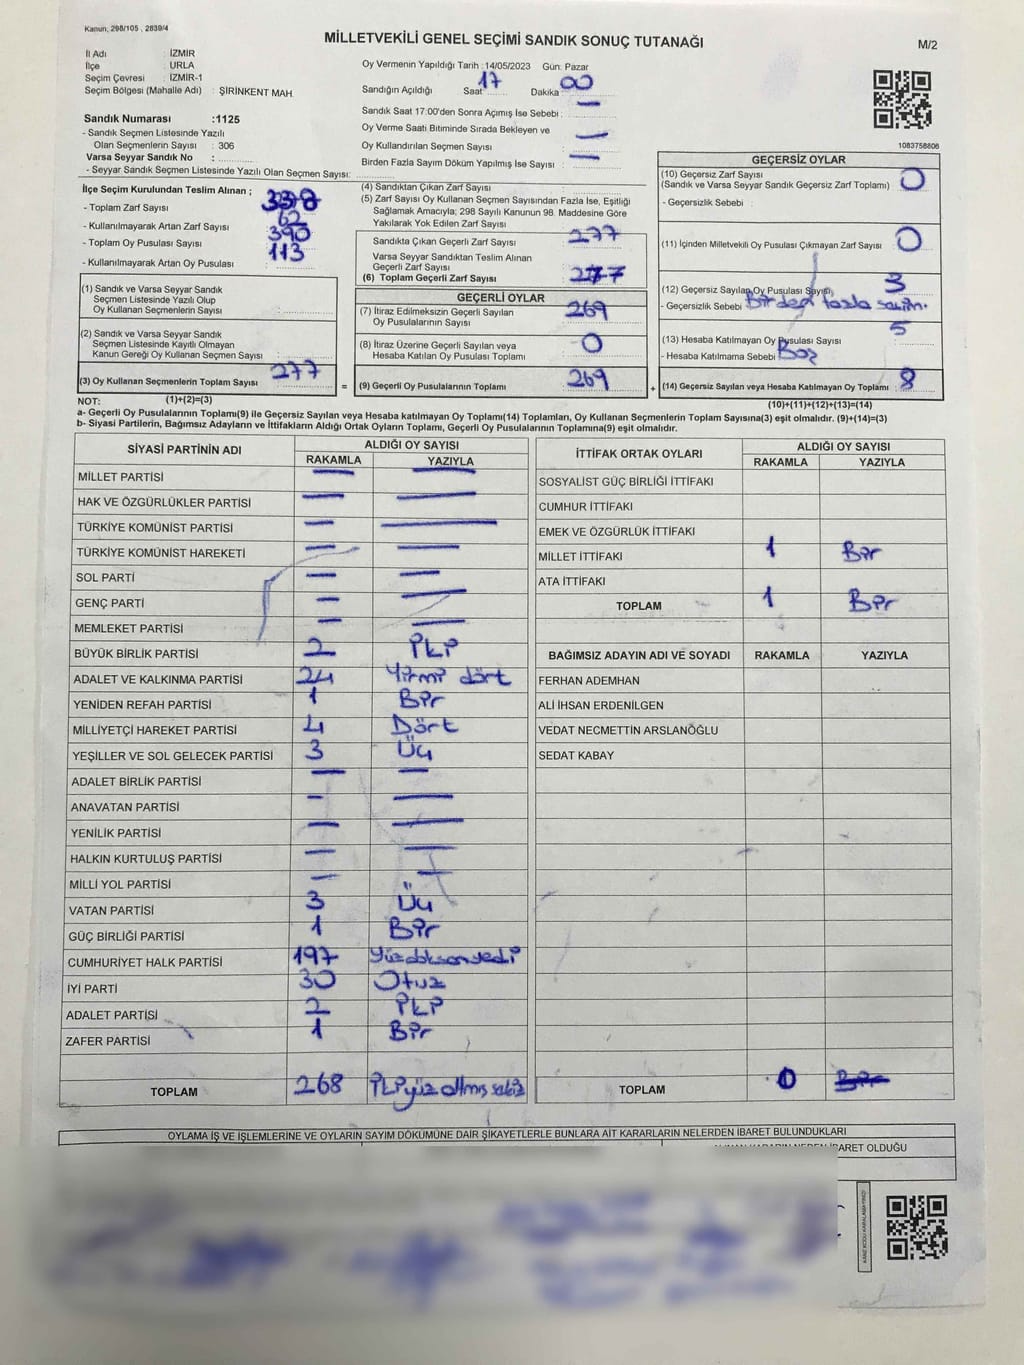 Kanun, 298/105 , 2839/4
MİLLETVEKİLİ GENEL SEÇİMİ SANDIK SONUÇ TUTANAĞI
M/2
İl Adı : İZMİR
İlçe : URLA
Seçim Çevresi : İZMİR-1
Seçim Bölgesi (Mahalle Adı) : ŞİRİNKENT MAH.
Sandık Numarası :1125
- Sandık Seçmen Listesinde Yazılı
Olan Seçmenlerin Sayısı : 306
Varsa Seyyar Sandık No :
- Seyyar Sandık Seçmen Listesinde Yazılı Olan Seçmen Sayısı:
Oy Vermenin Yapıldığı Tarih :14/05/2023 Gün: Pazar
Sandığın Açıldığı Saat 17 Dakika 00
Sandık Saat 17:00'den Sonra Açımış İse Sebebi : —
Oy Verme Saati Bitiminde Sırada Bekleyen ve
Oy Kullandırılan Seçmen Sayısı : —
Birden Fazla Sayım Döküm Yapılmış İse Sayısı : —
1083758806
İlçe Seçim Kurulundan Teslim Alınan ;
- Toplam Zarf Sayısı :
- Kullanılmayarak Artan Zarf Sayısı : 62
- Toplam Oy Pusulası Sayısı : 390
- Kullanılmayarak Artan Oy Pusulası : 113
(1) Sandık ve Varsa Seyyar Sandık
Seçmen Listesinde Yazılı Olup
Oy Kullanan Seçmenlerin Sayısı :
(2) Sandık ve Varsa Seyyar Sandık
Seçmen Listesinde Kayıtlı Olmayan
Kanun Gereği Oy Kullanan Seçmen Sayısı :
(3) Oy Kullanan Seçmenlerin Toplam Sayısı : 277
(4) Sandıktan Çıkan Zarf Sayısı :
(5) Zarf Sayısı Oy Kullanan Seçmen Sayısından Fazla İse, Eşitliği
Sağlamak Amacıyla; 298 Sayılı Kanunun 98. Maddesine Göre
Yakılarak Yok Edilen Zarf Sayısı :
Sandıkta Çıkan Geçerli Zarf Sayısı : 277
Varsa Seyyar Sandıktan Teslim Alınan
Geçerli Zarf Sayısı :
(6) Toplam Geçerli Zarf Sayısı : 277
GEÇERLİ OYLAR
(7) İtiraz Edilmeksizin Geçerli Sayılan
Oy Pusulalarının Sayısı : 269
(8) İtiraz Üzerine Geçerli Sayılan veya
Hesaba Katılan Oy Pusulası Toplamı : 0
= (9) Geçerli Oy Pusulalarının Toplamı : 269
GEÇERSİZ OYLAR
(10) Geçersiz Zarf Sayısı : 0
(Sandık ve Varsa Seyyar Sandık Geçersiz Zarf Toplamı)
- Geçersizlik Sebebi :
(11) İçinden Milletvekili Oy Pusulası Çıkmayan Zarf Sayısı : 0
(12) Geçersiz Sayılan Oy Pusulası Sayısı : 3
- Geçersizlik Sebebi : Birden fazla
(13) Hesaba Katılmayan Oy Pusulası Sayısı : 5
- Hesaba Katılmama Sebebi : Boş
+ (14) Geçersiz Sayılan veya Hesaba Katılmayan Oy Toplamı : 8
NOT: (1)+(2)=(3)
(10)+(11)+(12)+(13)=(14)
a- Geçerli Oy Pusulalarının Toplamı(9) ile Geçersiz Sayılan veya Hesaba katılmayan Oy Toplamı(14) Toplamları, Oy Kullanan Seçmenlerin Toplam Sayısına(3) eşit olmalıdır. (9)+(14)=(3)
b- Siyasi Partilerin, Bağımsız Adayların ve İttifakların Aldığı Ortak Oyların Toplamı, Geçerli Oy Pusulalarının Toplamına(9) eşit olmalıdır.
SİYASİ PARTİNİN ADI
ALDIĞI OY SAYISI
RAKAMLA YAZIYLA
MİLLET PARTİSİ — —
HAK VE ÖZGÜRLÜKLER PARTİSİ — —
TÜRKİYE KOMÜNİST PARTİSİ — —
TÜRKİYE KOMÜNİST HAREKETİ — —
SOL PARTİ — —
GENÇ PARTİ — —
MEMLEKET PARTİSİ — —
BÜYÜK BİRLİK PARTİSİ 2 İki
ADALET VE KALKINMA PARTİSİ 24 Yirmi dört
YENİDEN REFAH PARTİSİ 1 Bir
MİLLİYETÇİ HAREKET PARTİSİ 4 Dört
YEŞİLLER VE SOL GELECEK PARTİSİ 3 Üç
ADALET BİRLİK PARTİSİ — —
ANAVATAN PARTİSİ — —
YENİLİK PARTİSİ — —
HALKIN KURTULUŞ PARTİSİ — —
MİLLİ YOL PARTİSİ — —
VATAN PARTİSİ 3 Üç
GÜÇ BİRLİĞİ PARTİSİ 1 Bir
CUMHURİYET HALK PARTİSİ 197 Yüzdoksanyedi
İYİ PARTİ 30 Otuz
ADALET PARTİSİ 2 İki
ZAFER PARTİSİ 1 Bir
TOPLAM 268 İkiyüz altmış sekiz
İTTİFAK ORTAK OYLARI
ALDIĞI OY SAYISI
RAKAMLA YAZIYLA
SOSYALİST GÜÇ BİRLİĞİ İTTİFAKI
CUMHUR İTTİFAKI
EMEK VE ÖZGÜRLÜK İTTİFAKI
MİLLET İTTİFAKI 1 Bir
ATA İTTİFAKI
TOPLAM 1 Bir
BAĞIMSIZ ADAYIN ADI VE SOYADI RAKAMLA YAZIYLA
FERHAN ADEMHAN
ALİ İHSAN ERDENİLGEN
VEDAT NECMETTİN ARSLANOĞLU
SEDAT KABAY
TOPLAM 0 Bir
OYLAMA İŞ VE İŞLEMLERİNE VE OYLARIN SAYIM DÖKÜMÜNE DAİR ŞİKAYETLERLE BUNLARA AİT KARARLARIN NELERDEN İBARET BULUNDUKLARI
İBARET OLDUĞU